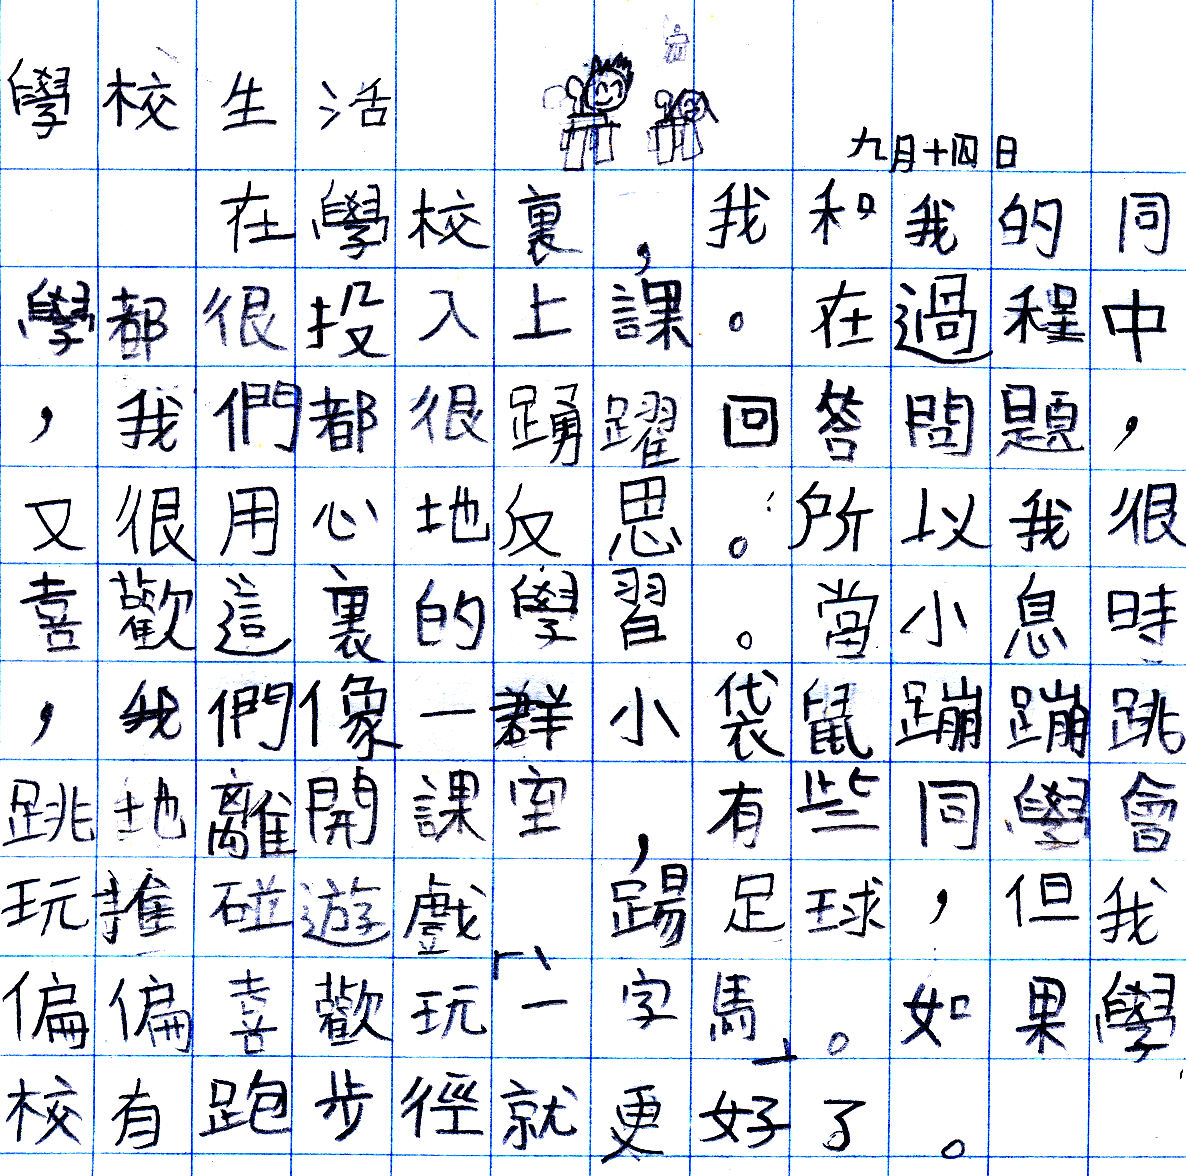 學校生活
九月十四日
在學校裏，我和我的同
學都很投入上課。在過程中
，我們都很踴躍回答問題，
又很用心地反思。所以我很
喜歡這裏的學習。當小息時
，我們像一群小袋鼠蹦蹦跳
跳地離開課室，有些同學會
玩推碰遊戲、踢足球，但我
偏偏喜歡玩「一字馬」。如果學
校有跑步徑就更好了。